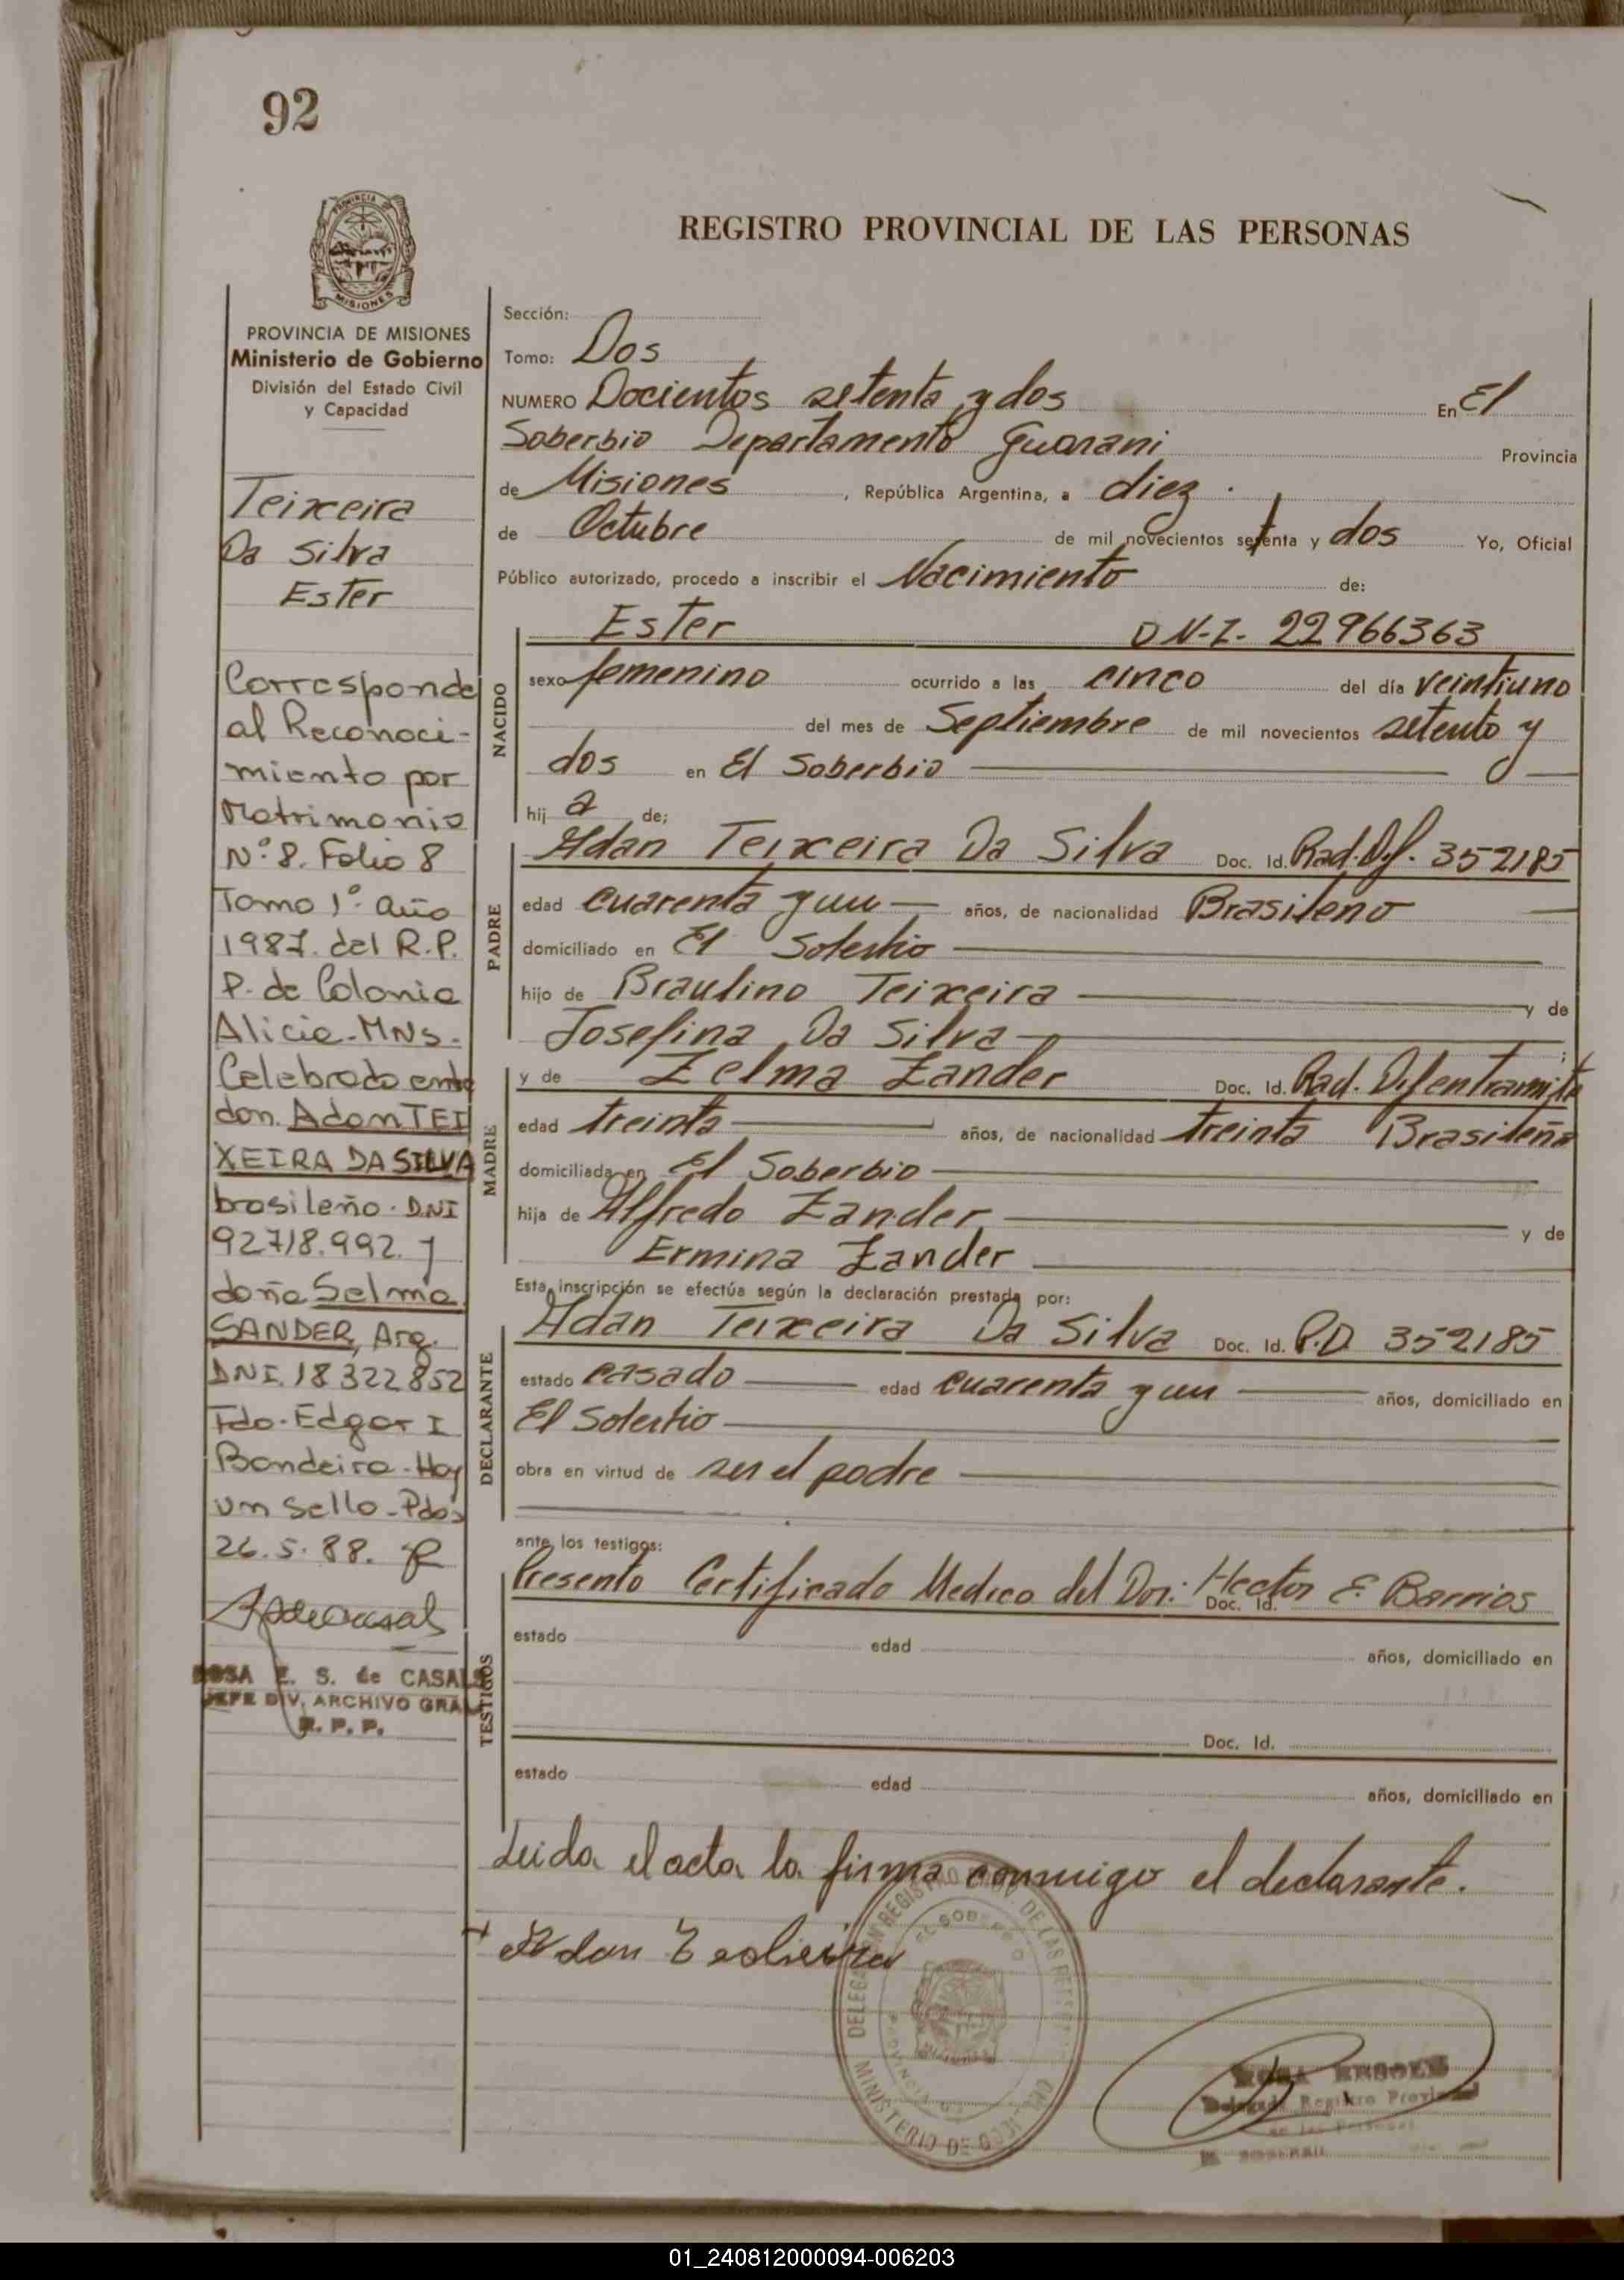 92
REGISTRO PROVINCIAL DE LAS PERSONAS
PROVINCIA
MISIONES
PROVINCIA DE MISIONES
Ministerio de Gobierno
División del Estado Civil
y Capacidad
Teixeira
Da Silva
Ester
Corresponde
al Reconoci-
miento por
Matrimonio
N°8. Folio 8
Tomo 1° año
1987. del R.P.
P. de Colonia
Alicia-MNs.
Celebrado entre
don. Adan TEI
XEIRA DA SILVA
brasileño. DNI
92718.992. y
doña Selma
SANDER, Arg.
DNI. 18322852
Fdo. Edgar I
Bandeira-Hay
un sello-Pdas
26.5.88.
ROSA E. S. de CASALS
JEFE DIV. ARCHIVO GRAL
R. P. P.
Sección:
Tomo: Dos
NUMERO Docientos setenta y dos En El
Soberbio Departamento Guarani Provincia
de Misiones, República Argentina, a diez
de Octubre de mil novecientos setenta y dos Yo, Oficial
Público autorizado, procedo a inscribir el Nacimiento de:
NACIDO
Ester D.N.I. 22966363
sexo femenino ocurrido a las cinco del día veintiuno
del mes de Septiembre de mil novecientos setenta y
dos en El Soberbio
hij a de;
PADRE
Adan Teixeira Da Silva Doc. Id. Rad. Def. 352185
edad cuarenta y un años, de nacionalidad Brasileno
domiciliado en El Soberbio
hijo de Braulino Teixeira y de
Josefina Da Silva ;
MADRE
y de Zelma Zander Doc. Id. Rad. Def en tramite
edad treinta años, de nacionalidad treinta Brasileña
domiciliada en El Soberbio
hija de Alfredo Zander y de
Ermina Zander
Esta inscripción se efectúa según la declaración prestada por:
DECLARANTE
Adan Teixeira Da Silva Doc. Id. R.D 352185
estado casado edad cuarenta y un años, domiciliado en
El Soberbio
obra en virtud de ser el padre
ante los testigos:
TESTIGOS
Presento Certificado Medico del Dor: Hector E. Barrios
Doc. Id.
estado edad años, domiciliado en
Doc. Id.
estado edad años, domiciliado en
Leida el acta la firma conmigo el declarante.
Adan
DELEGACION REGISTRO DE LAS
EL SOBERBIO
PROVINCIA
MINISTERIO DE GOBIERNO
ROSA
Delegada Registro Provincial
de las Personas
01_240812000094-006203